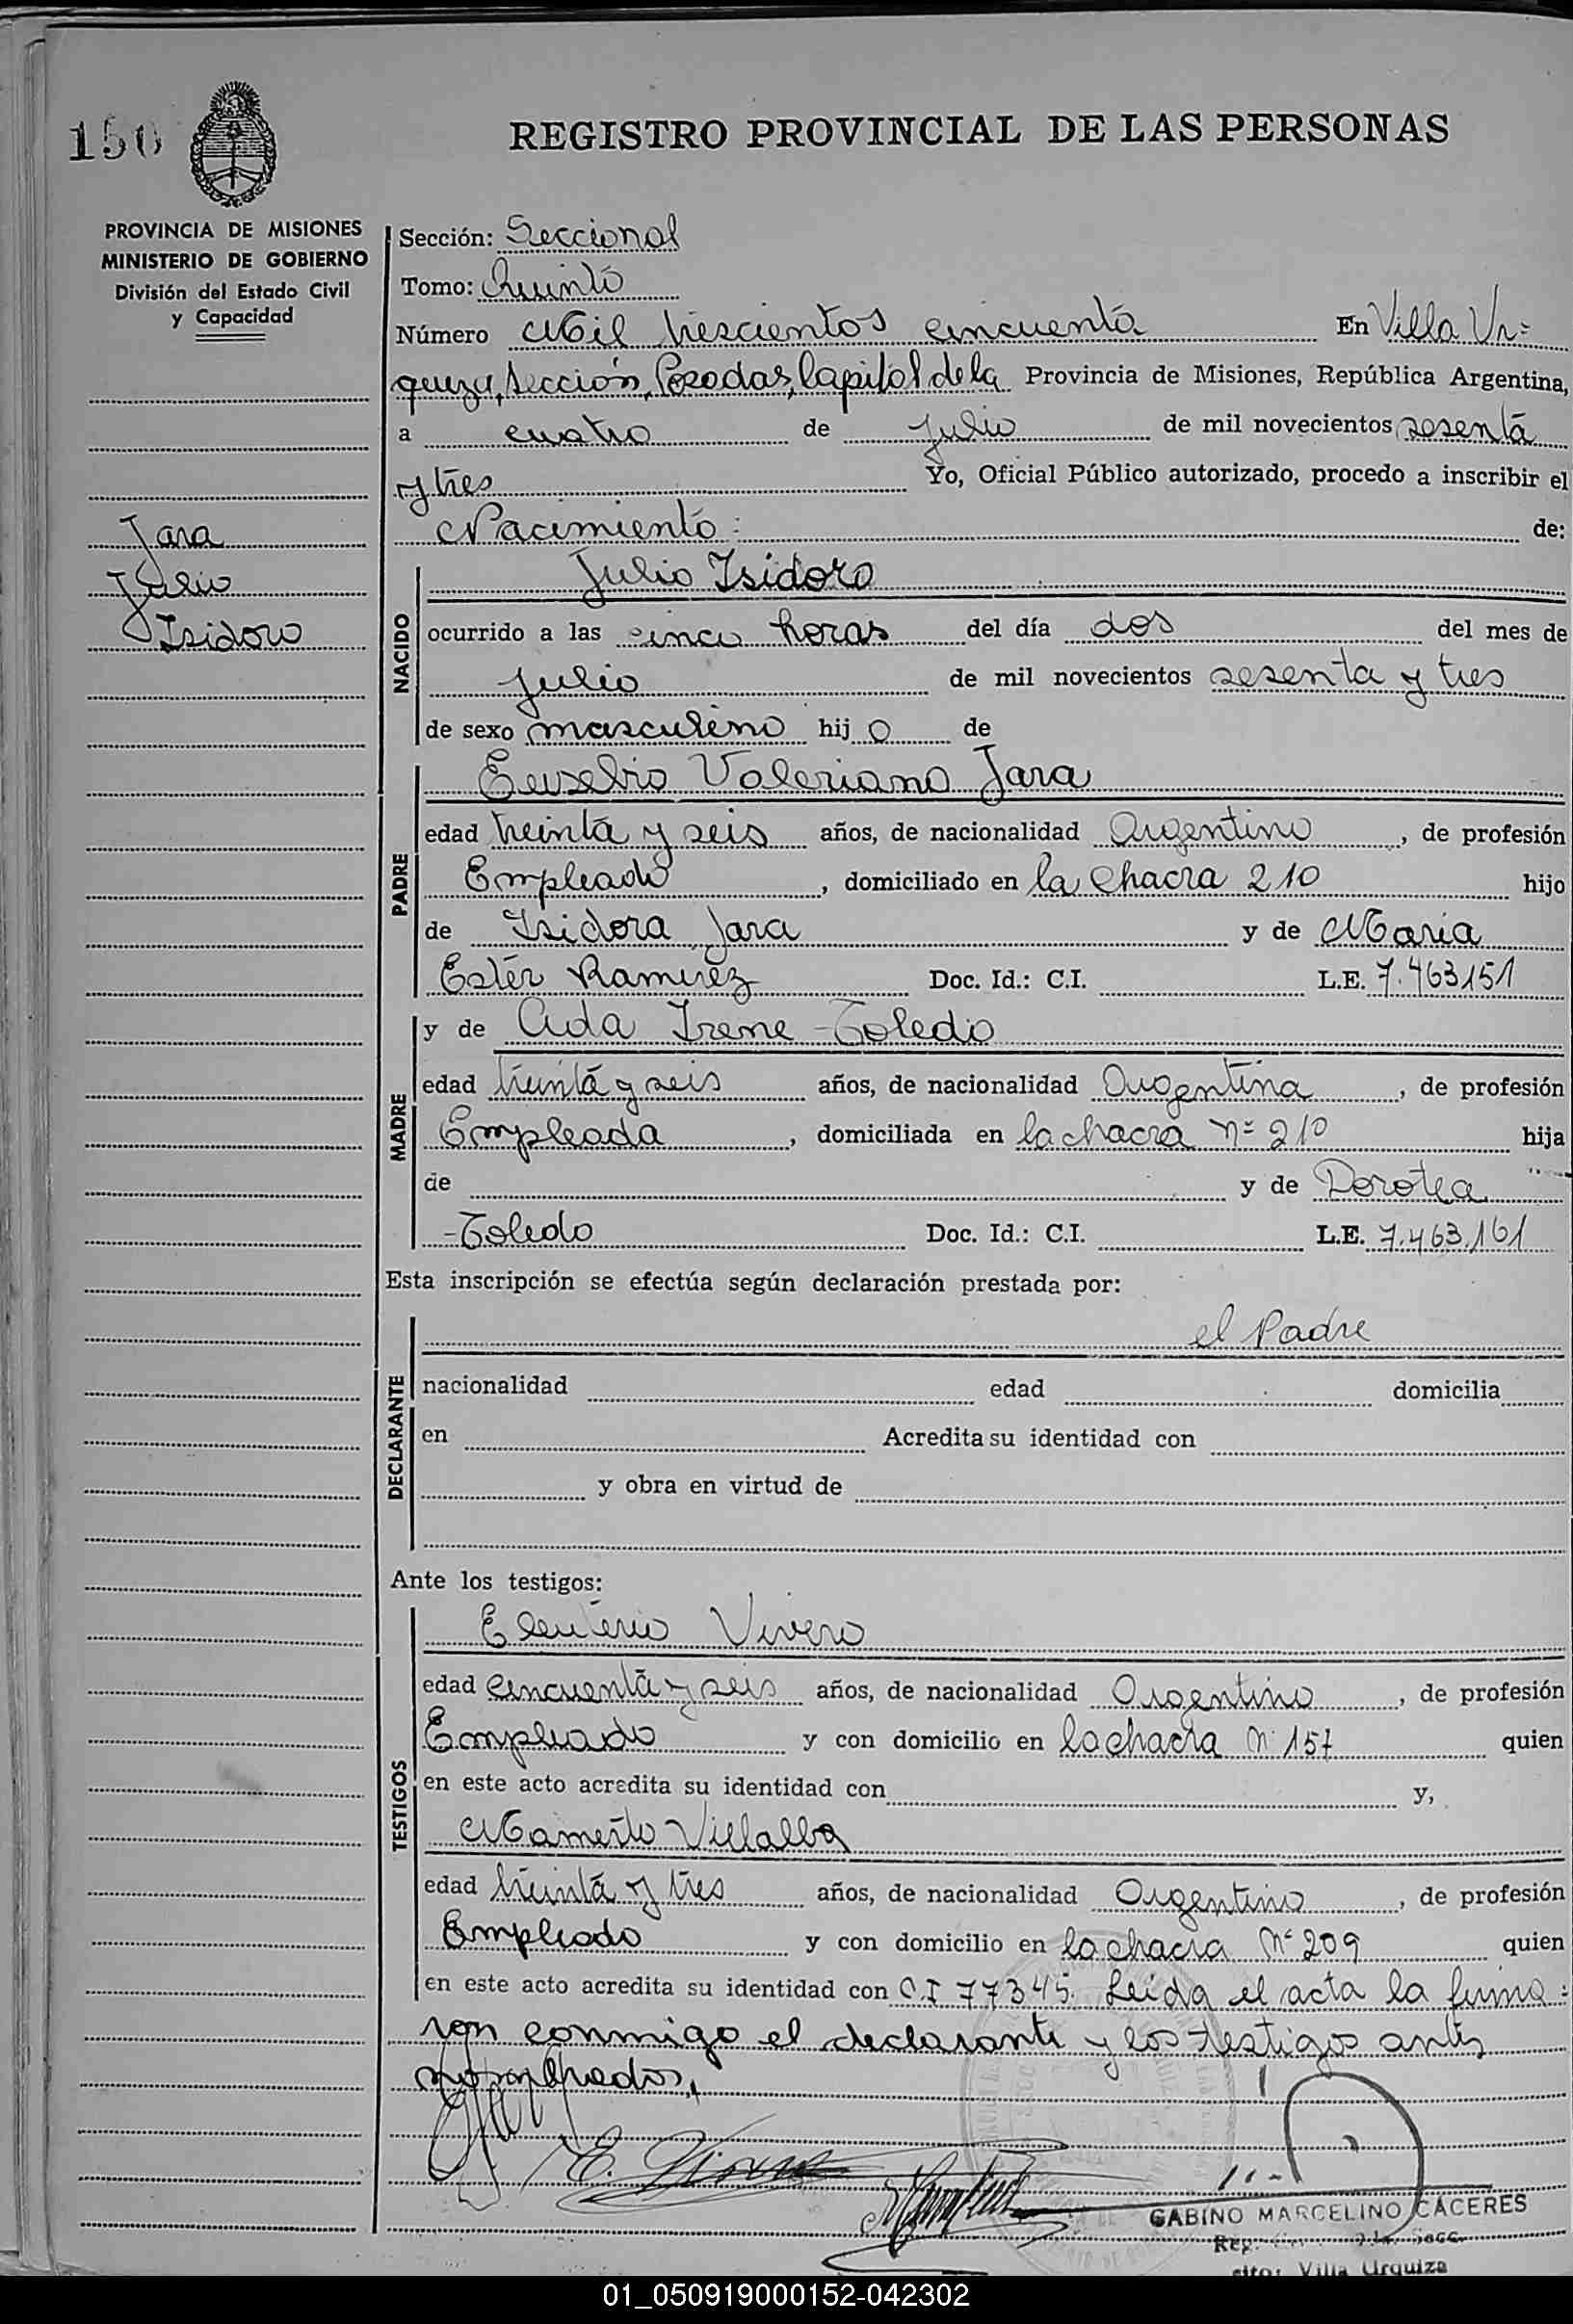 150
REGISTRO PROVINCIAL DE LAS PERSONAS
PROVINCIA DE MISIONES
MINISTERIO DE GOBIERNO
División del Estado Civil
y Capacidad
Jara
Julio
Isidoro
Sección: Seccional
Tomo: Quinto
Número Mil trescientos cincuenta En Villa Ur=
quiza, Sección, Posadas, Capital de la Provincia de Misiones, República Argentina,
a cuatro de julio de mil novecientos sesenta
y tres Yo, Oficial Público autorizado, procedo a inscribir el
Nacimiento: de:
NACIDO
Julio Isidoro
ocurrido a las cinco horas del día dos del mes de
julio de mil novecientos sesenta y tres
de sexo masculino hijo de
PADRE
Eusebio Valeriano Jara
edad treinta y seis años, de nacionalidad Argentino, de profesión
Empleado, domiciliado en la chacra 210 hijo
de Isidora Jara y de Maria
Ester Ramirez Doc. Id.: C.I. L.E. 7.463151
MADRE
y de Aida Irene Toledo
edad treinta y seis años, de nacionalidad Argentina, de profesión
Empleada, domiciliada en la chacra Nº 210 hija
de y de Dorotea
Toledo Doc. Id.: C.I. L.E. 7.463.161
Esta inscripción se efectúa según declaración prestada por:
DECLARANTE
el Padre
nacionalidad edad domicilia
en Acredita su identidad con
y obra en virtud de
Ante los testigos:
TESTIGOS
Eleuterio Vivero
edad cincuenta y seis años, de nacionalidad Argentino, de profesión
Empleado y con domicilio en la chacra Nº 157 quien
en este acto acredita su identidad con y,
Mamerto Villalba
edad treinta y tres años, de nacionalidad Argentino, de profesión
Empleado y con domicilio en la chacra Nº 209 quien
en este acto acredita su identidad con C.I 77345. Leida el acta la firma=
ron conmigo el declarante y los testigos antes
nombrados,
GABINO MARCELINO CÁCERES
Secc.
Villa Urquiza
01_050919000152-042302